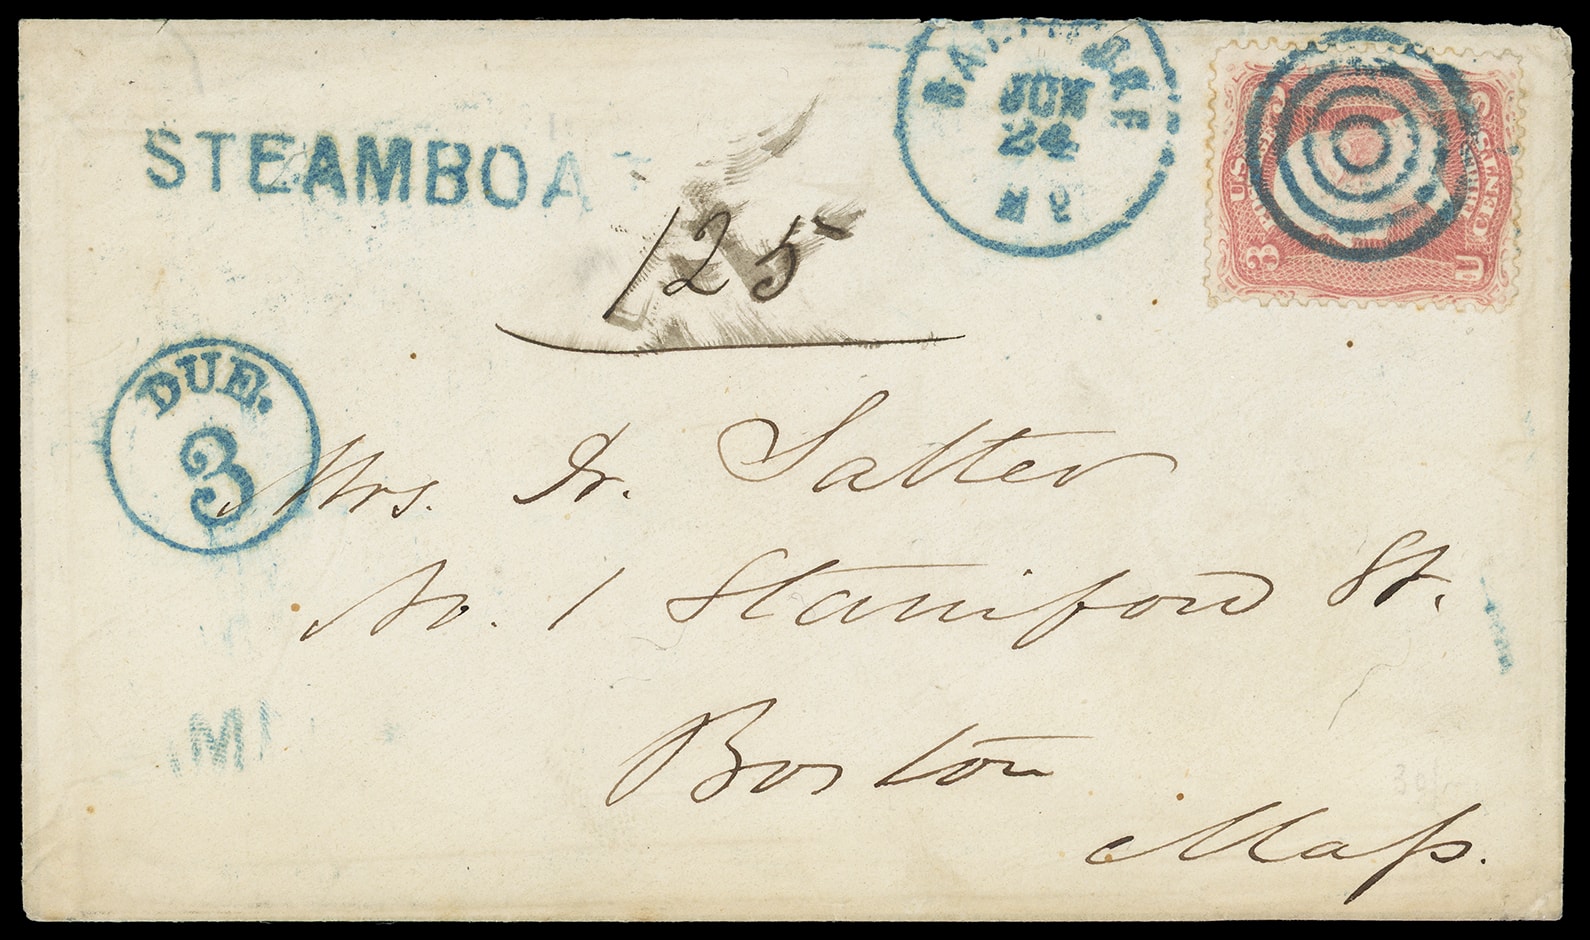 STEAMBOA
JUN
24
Md
125
U.S. POSTAGE
3 CENTS
U
DUE.
3
Mrs. Dr. Salter
No. 1 Staniford St.
Boston
Mass.